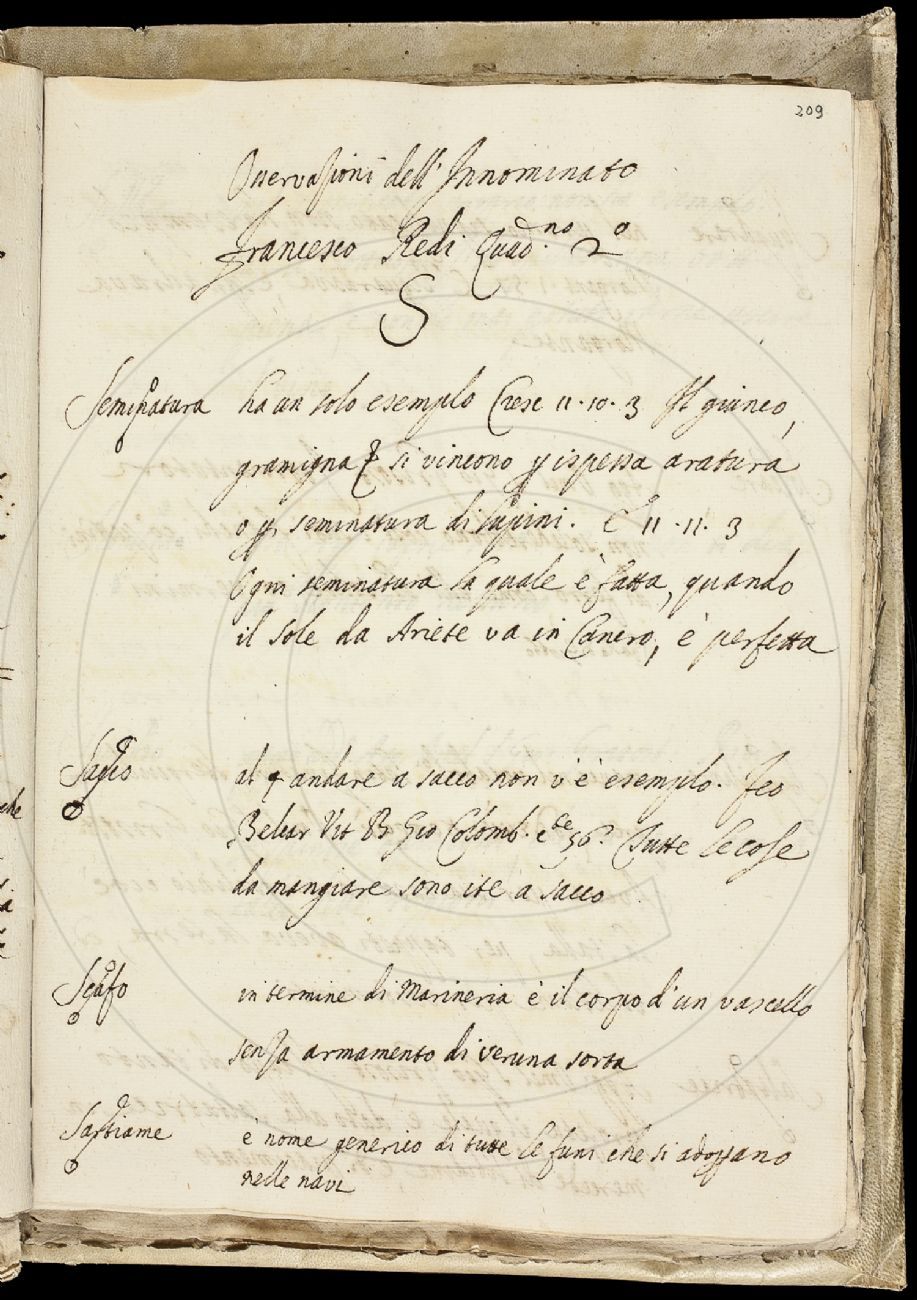 209
Osservazioni dell'Innominato
Francesco Redi Quad.no 2o
S
Seminatura ha un solo esempio Cresc 11.10.3 Il giunco,
gramigna & si vincono p ispessa aratura
o p seminatura di lupini. E 11.11.3
Ogni seminatura la quale è fatta, quando
il sole da Ariete va in Cancro, è perfetta
Sacco al § andare a sacco non v'è esempio. Feo
Belcar Vit B Gio Colomb. c.te 56. Tutte le cose
da mangiare sono ite a sacco
Scafo in termine di Marineria è il corpo d'un vascello
senza armamento di veruna sorta
Sartiame è nome generico di tutte le funi che si adoprano
nelle navi